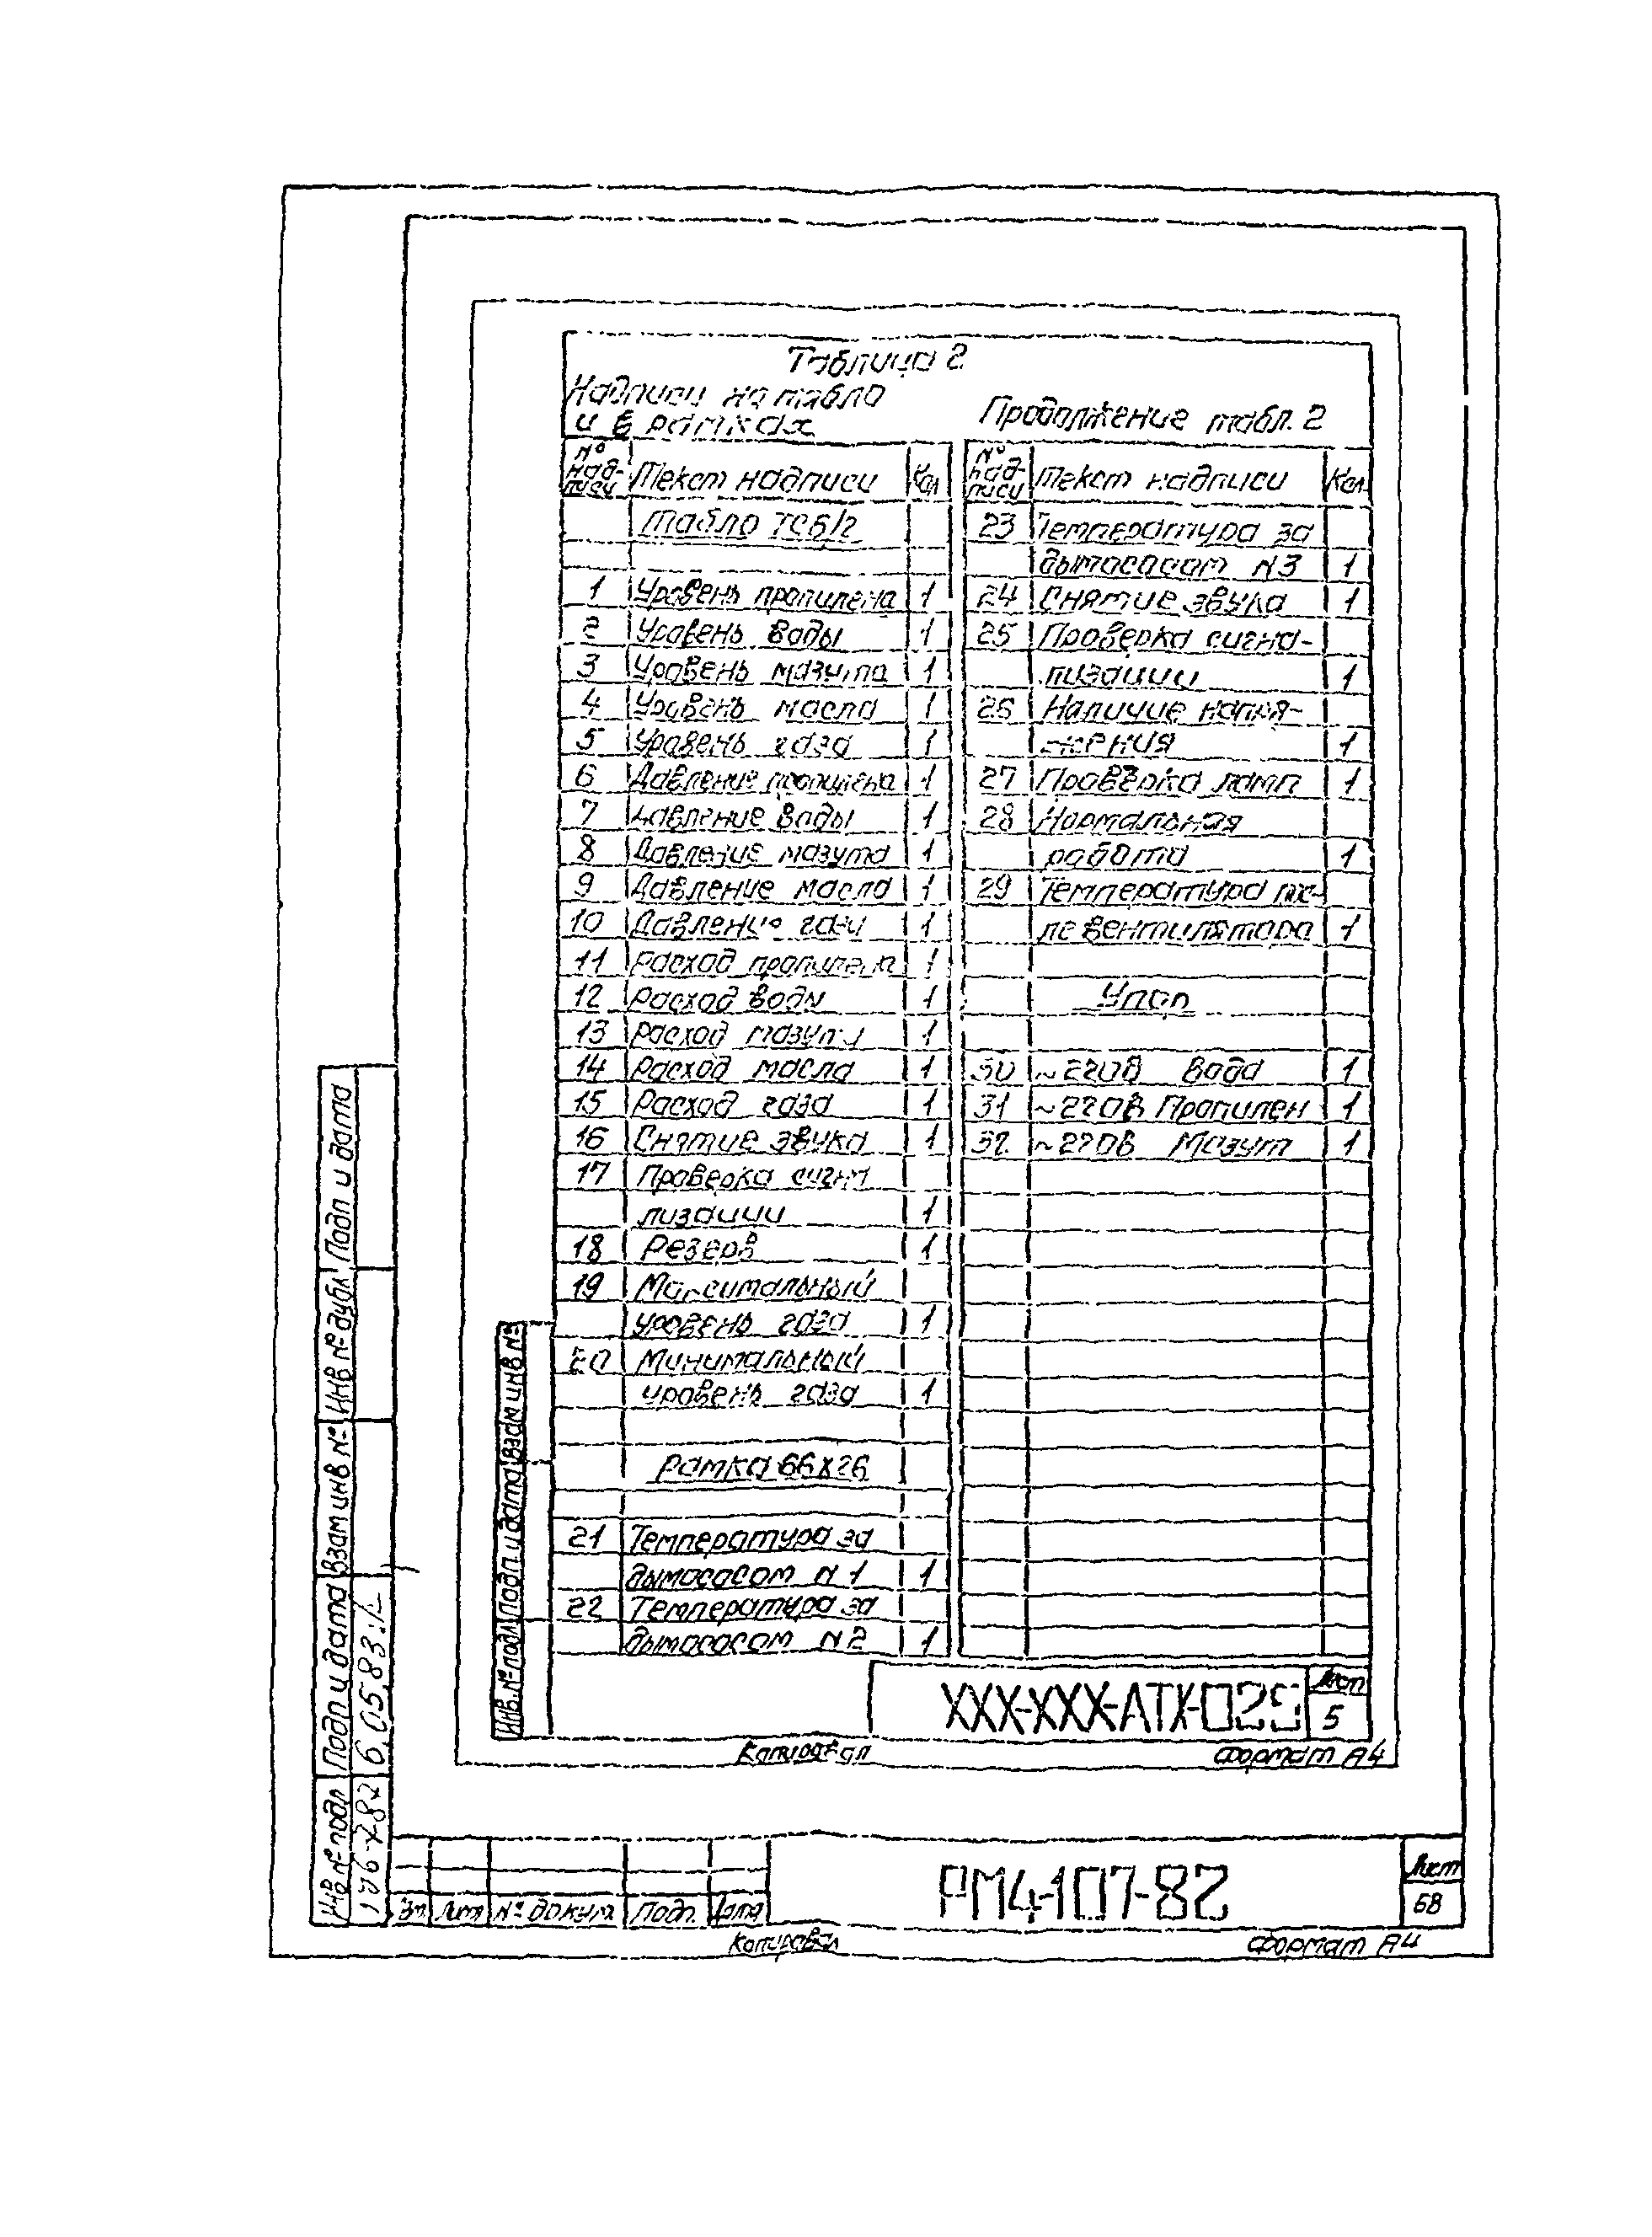 Таблица 2
Надписи на табло
и в рамках
№ над-писи Текст надписи Кол
Табло ТСБ/2
1 Уровень пропилена 1
2 Уровень воды 1
3 Уровень мазута 1
4 Уровень масла 1
5 Уровень газа 1
6 Давление пропилена 1
7 Давление воды 1
8 Давление мазута 1
9 Давление масла 1
10 Давление газа 1
11 Расход пропилена 1
12 Расход воды 1
13 Расход мазута 1
14 Расход масла 1
15 Расход газа 1
16 Снятие звука 1
17 Проверка сигна
лизации 1
18 Резерв 1
19 Максимальный
уровень газа 1
20 Минимальный
уровень газа 1
Рамка 66х26
21 Температура за
дымососом N1 1
22 Температура за
дымососом N2 1
Продолжение табл. 2
№ над-писи Текст надписи Кол.
23 Температура за
дымососом N3 1
24 Снятие звука 1
25 Проверка сигна-
лизации 1
26 Наличие напря-
жения 1
27 Проверка ламп 1
28 Нормальная
работа 1
29 Температура пос-
ле вентилятора 1
Упор
30 ~220В Вода 1
31 ~220В Пропилен 1
32 ~220В Мазут 1
XXX-XXX-АТХ-029
Лист
5
Копировал Формат А4
Инв.№ подл Подп и дата Взам инв №
Инв № подл Подп и дата Взам инв № Инв № дубл Подп и дата
6.05.83
Изм Лист № докум Подп. Дата
РМ4-107-82
Лист
68
Копировал Формат А4